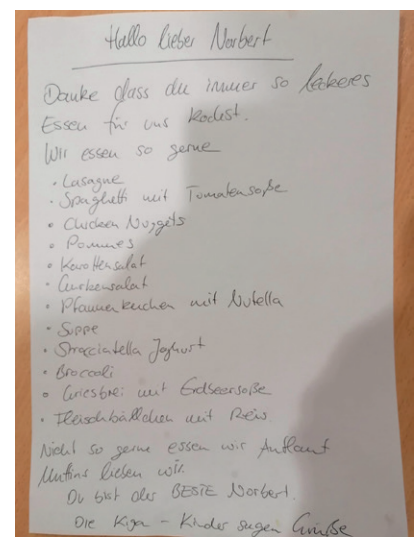 Hallo lieber Norbert
Danke dass du immer so leckeres
Essen für uns kochst.
Wir essen so gerne
• Lasagne
• Spaghetti mit Tomatensoße
• Chicken Nuggets
• Pommes
• Karottensalat
• Gurkensalat
• Pfannenkuchen mit Nutella
• Suppe
• Stracciatella Joghurt
• Broccoli
• Griesbrei mit Erdbeersoße
• Fleischbällchen mit Reis.
Nicht so gerne essen wir Auflauf
Muffins lieben wir.
Du bist der BESTE Norbert.
Die Kiga - Kinder sagen Grüße